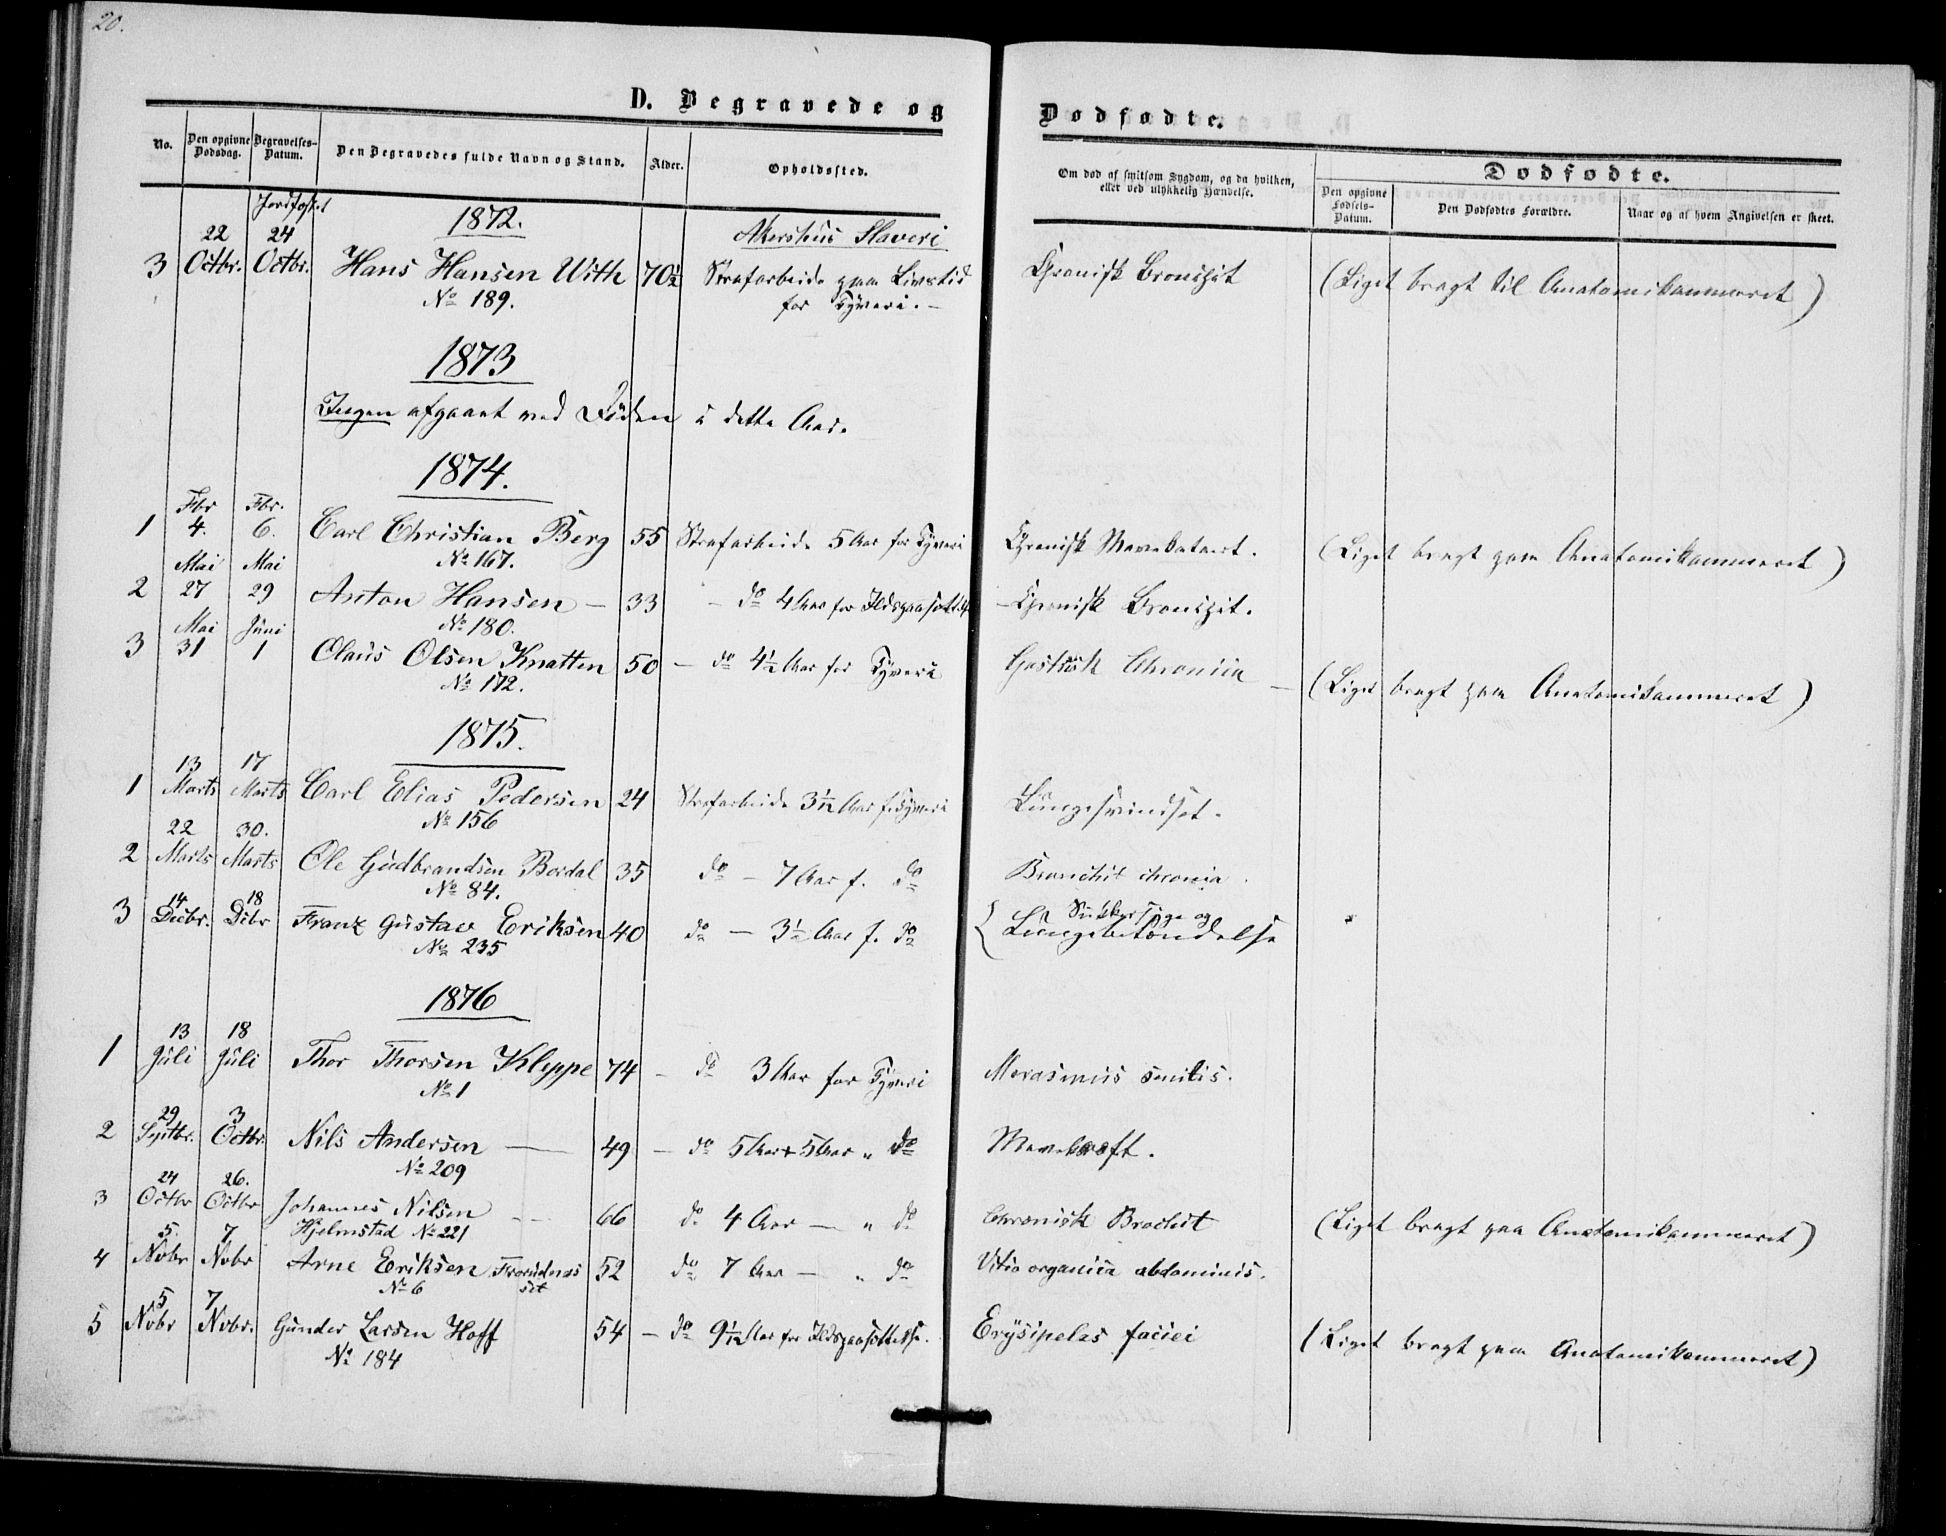 20.
D. Begravede og
Dødfødte.
No.
Den opgivne Dødsdag.
Begravelses-Datum.
Den Begravedes fulde Navn og Stand.
Alder.
Opholdssted.
Om død af smitsom Sygdom, og da hvilken,
eller ved ulykkelig Hændelse.
Dødfødte.
Den opgivne Fødsels-Datum.
Den Dødfødtes Forældre.
Naar og af hvem Angivelsen er skeet.
Jordfæstet
1872.
Akershus Slaveri
22 24
3 Octbr. Octbr. Hans Hansen With 70½ Strafarbeide paa Livstid Chronisk Bronchit (Liget bragt til Anatomikammeret)
No 189. for Tyveri.-
1873
Ingen afgaaet ved Døden i dette Aar.
1874.
Fbr Fbr.
1 4. 6. Carl Christian Berg 55 Strafarbeide 5 Aar for Tyveri Chronisk Mavekatarrh. (Liget bragt paa Anatomikammeret)
No 167.
Mai Mai
2 27 29 Anton Hansen - 33 - do 4 Aar for Ildspaasættelse - Chronisk Bronchit.
No 180.
Mai Juni
3 31 1 Olaus Olsen Knatten 50 - do 4½ Aar for Tyveri Chronica - (Liget bragt paa Anatomikammeret)
No 172.
1875.
13 17
1 Marts Marts Carl Elias Pedersen 24 Strafarbeide Aar f. Tyveri Lungesvindsot.
No 156
22 30.
2 Marts Marts Ole Gudbrandsen Bordal 35 do - 7 Aar f. do Bronchit chronica.
No 84.
14 18
3 Decbr. Dcbr Franz Gustav Eriksen 40 do - 3½ Aar f. do { Sukkersyge og
No 235 Lungebetændelse
1876
13 18
1 Juli Juli Thor Thorsen Kleppe 74 - do 3 Aar for Tyveri Marasmus senilis.
No 1
29 3
2 Septbr. Octbr. Nils Andersen - 49 - do 5 Aar + 5 Aar " do Mavekræft.
No 209
24 26.
3 Octbr Octbr Johannes Nilsen - 66 do 4 Aar - " do Chronisk Brochit (Liget bragt paa Anatomikammeret)
Hjelmstad No 221
5. 7
4 Novbr Novbr Arne Eriksen 52 do 7 Aar - " do Vitia organica abdominis.
No 6
5 7
5 Novbr Novbr. Gunder Larsen Hoff 54 - do Aar for Ildspaasættelse. Erysipelas faciei (Liget bragt paa Anatomikammeret)
No 184